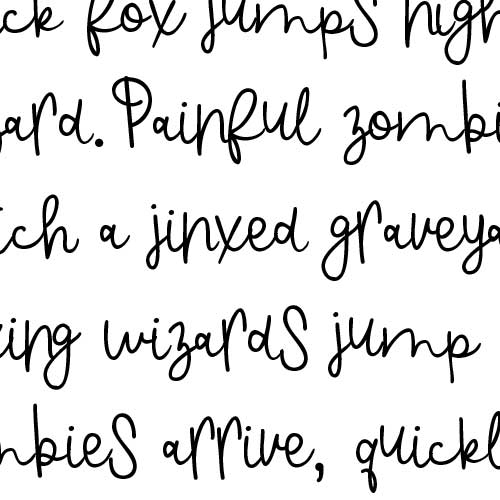 ck fox jumps high
zard. Painful zombi
tch a jinxed graveya
xing wizards jump
mbies arrive, quickl